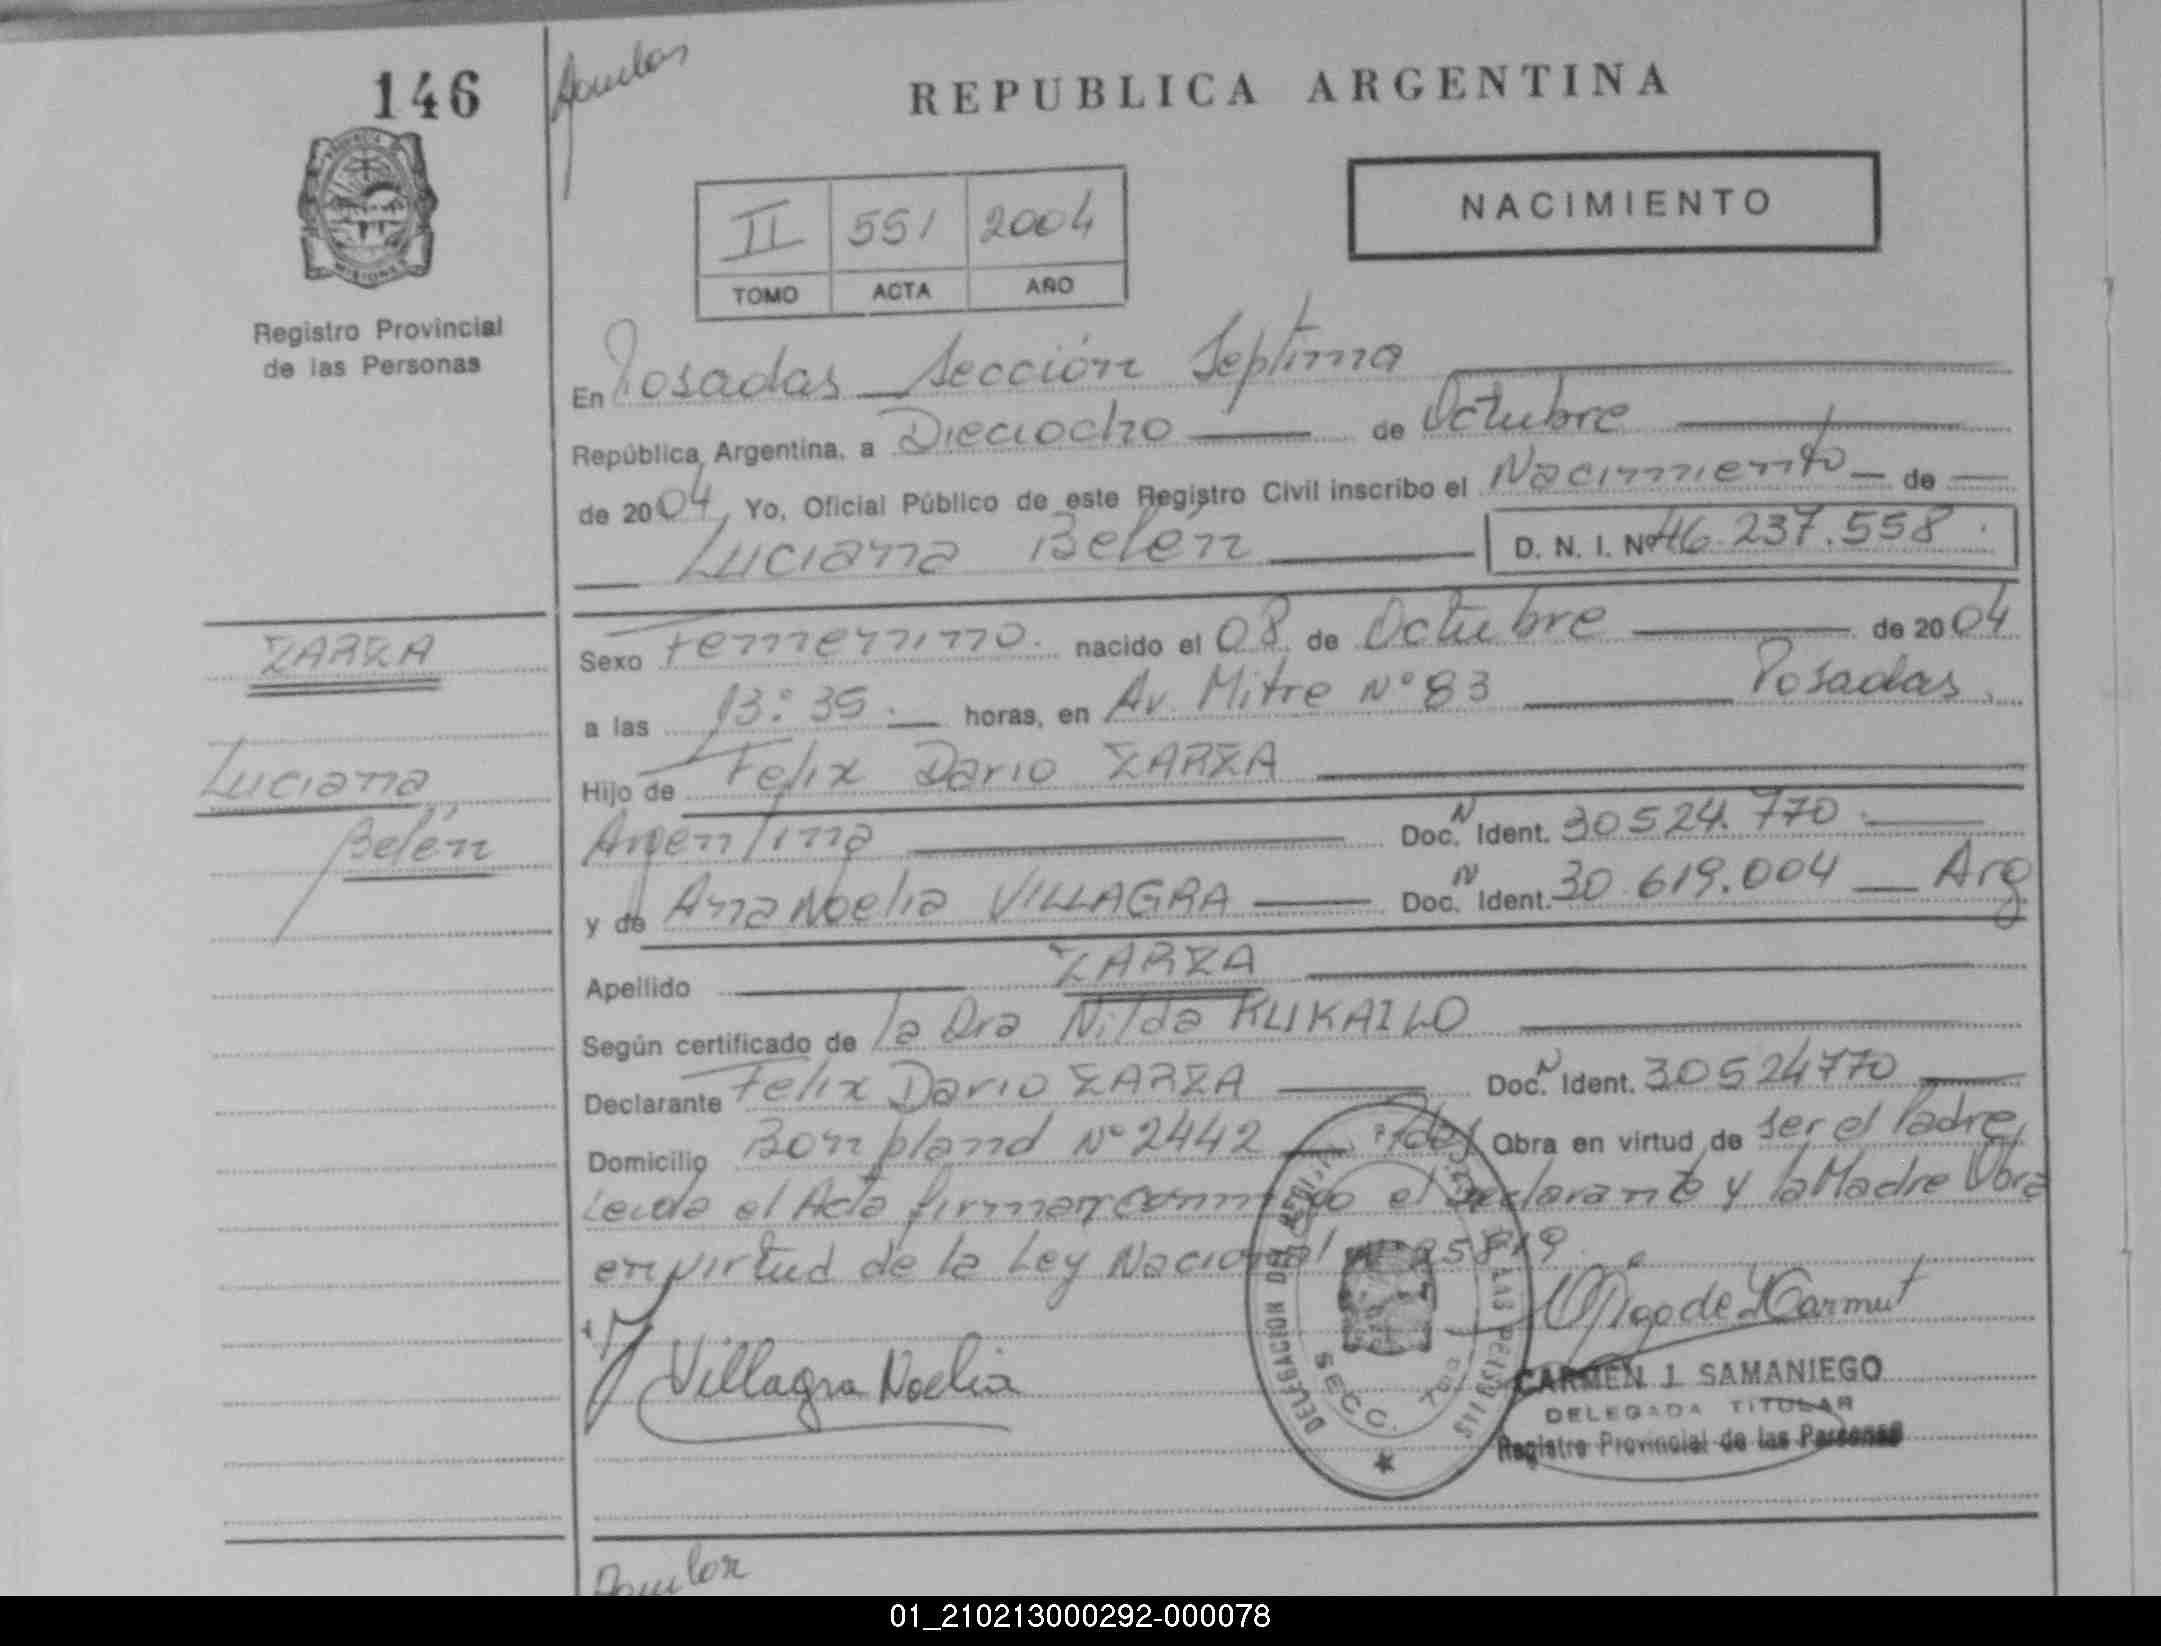 146
REPUBLICA ARGENTINA
NACIMIENTO
II 551 2004
TOMO ACTA AÑO
Registro Provincial
de las Personas
En Posadas Sección Septima
República Argentina, a Dieciocho de Octubre
de 2004, Yo, Oficial Público de este Registro Civil inscribo el Nacimiento de
Luciana Belén D. N. I. Nº 46.237.558
ZARZA
Luciana
Belén
Sexo Femenino. nacido el 08 de Octubre de 2004
a las 13:35. horas, en Av Mitre Nº 83 Posadas.
Hijo de Felix Dario ZARZA
Argentina Doc. N Ident. 30524.770
y de Ana Noelia VILLAGRA Doc. N Ident. 30.619.004 Arg
Apellido ZARZA
Según certificado de la Dra Nilda KUKAILO
Declarante Felix Dario ZARZA Doc. N Ident. 30524770
Domicilio Bompland Nº 2442 Pdas Obra en virtud de ser el Padre
Leida el Acta firman conmigo el declarante y la Madre Obra
en virtud de la Ley Nacional Nº 25819
Villagra Noelia
CARMEN J. SAMANIEGO
DELEGADA TITULAR
Registro Provincial de las Personas
SECC. 7
01_210213000292-000078